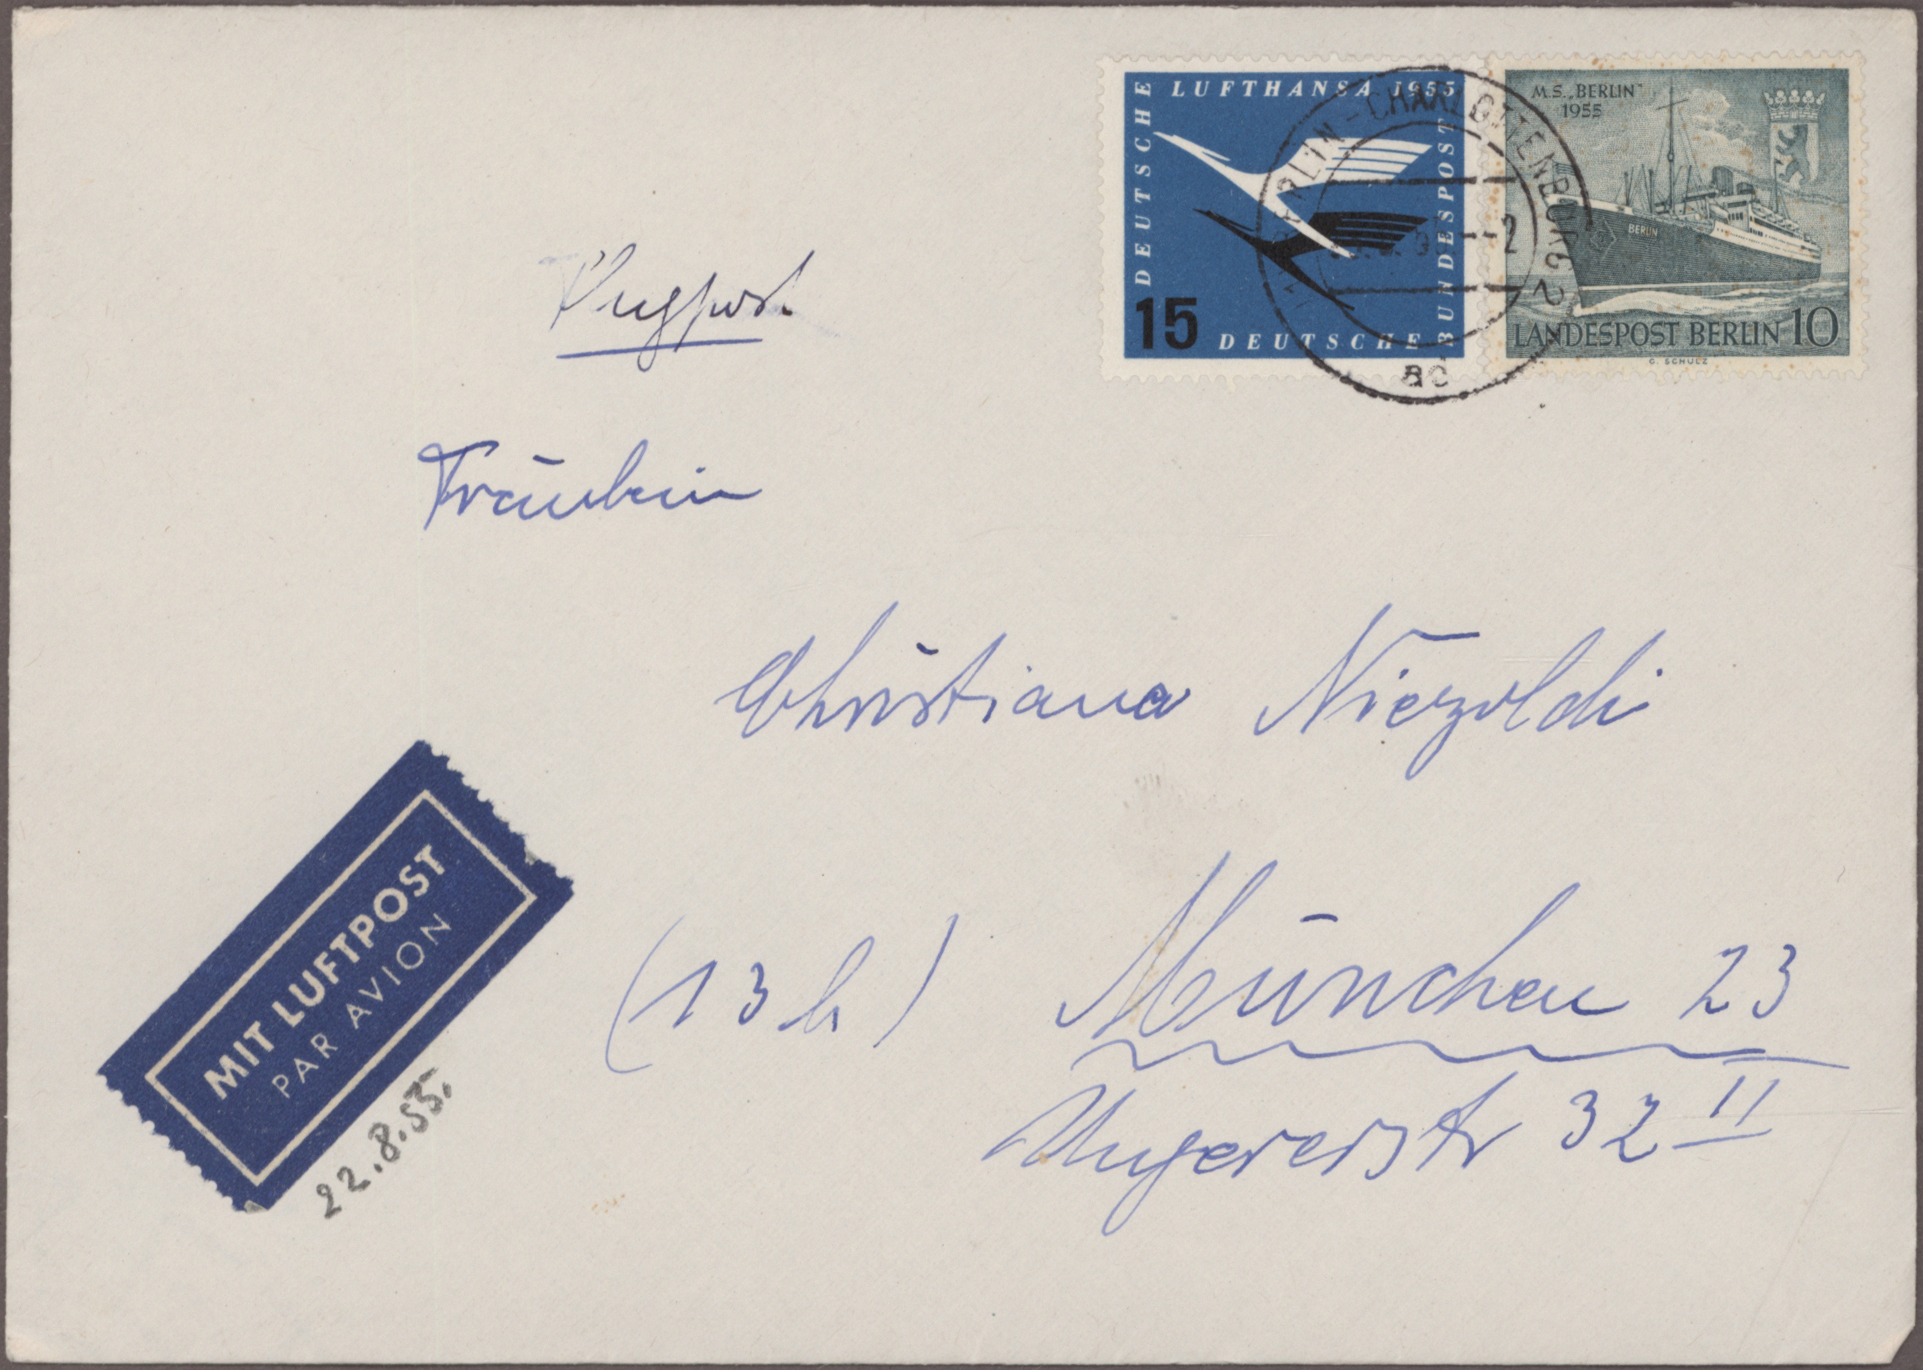 LUFTHANSA 1955
DEUTSCHE
BUNDESPOST
15 DEUTSCHE
M.S. „BERLIN"
1955
BERLIN
LANDESPOST BERLIN 10
G. SCHULZ
BERLIN-CHARLOTTENBURG 2
ac
Flugpost
Fräulein
Christiana Niezoldi
(13b) München 23
Ungererstr 32 II
MIT LUFTPOST
PAR AVION
22.8.55.